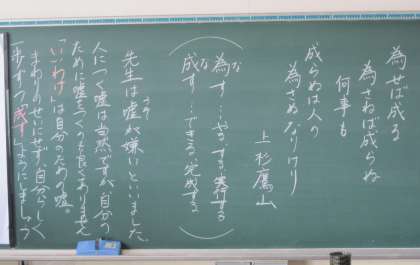 為せば成る
為さねば成らぬ
何事も
成らぬは人の
為さぬなりけり
上杉鷹山
為す…やってみる 実行する
成す…できる、完成する
先生は嘘が嫌いといいました。
人につく嘘は当然ですが、自分の
ために嘘をつくのも良くありません
「いいわけ」は自分のための嘘。
まわりのせいにせず、自分らしく
一歩ずつ「成す」ようにしましょう